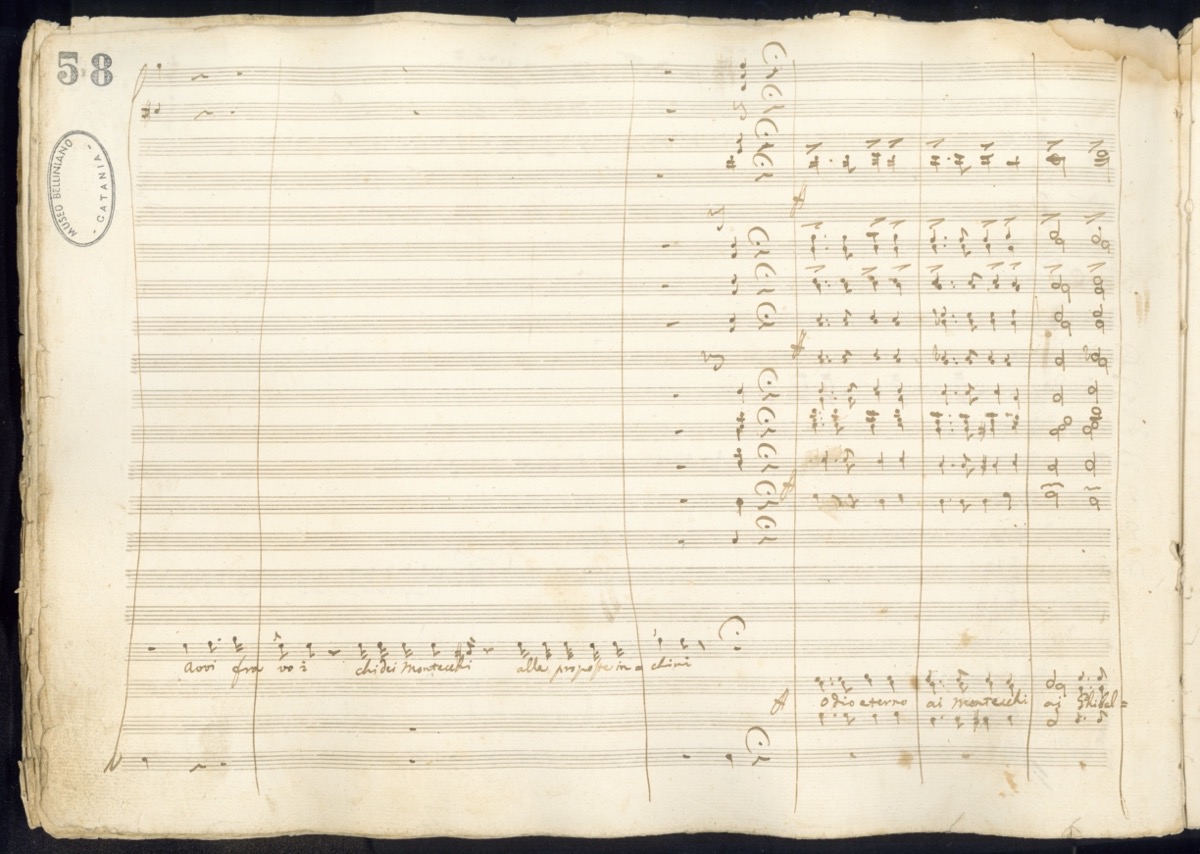 58
MUSEO BELLINIANO
- CATANIA -
avvi fra voi chi dei Montecchi alle proposte in=chini
Odio eterno ai Montecchi ai Ghibel=